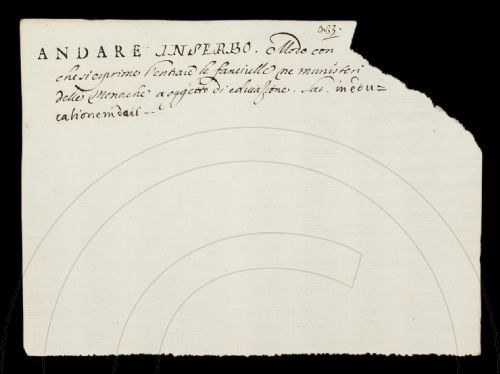 ANDARE IN SERBO. Modo con
che si esprime l'entrare le fanciulle ne munisteri
delle Monache a oggetto di educazione. Lat. in edu=
cationem dari —